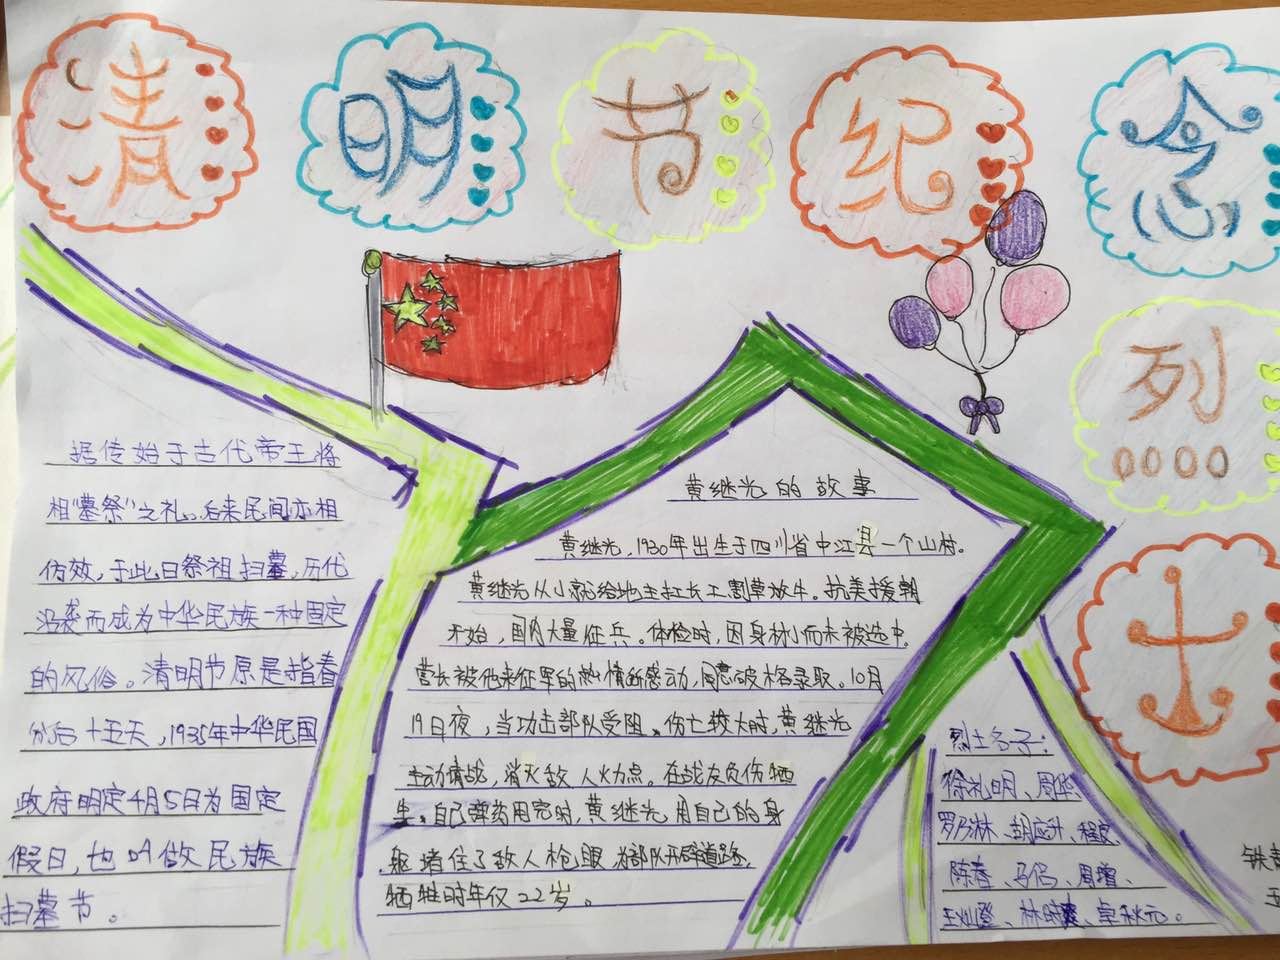 清明节纪念
烈
士
据传始于古代帝王将
相“墓祭”之礼。后来民间亦相
仿效,于此日祭祖扫墓,历代
沿袭而成为中华民族一种固定
的风俗。清明节原是指春
分后十五天,1935年中华民国
政府明定4月5日为国定
假日,也叫做民族
扫墓节。
黄继光的故事
黄继光,1930年出生于四川省中江县一个山村。
黄继光从小就给地主扛长工割草放牛。抗美援朝
开始,国内大量征兵。体检时,因身材小而未被选中。
营长被他来征军的热情所感动,同意破格录取。10月
19日夜,当功击部队受阻。伤亡较大时,黄继光
主动请战,消灭敌人火力点。在战友负伤牺
生。自己弹药用完时,黄继光用自己的身
躯堵住了敌人枪眼,为部队开辟道路。
牺牲时年仅22岁。
烈士名子:
徐礼明、周华
罗乃林、胡应升、程
陈春、马侣、周增、
王灿登、林时、卓秋元。